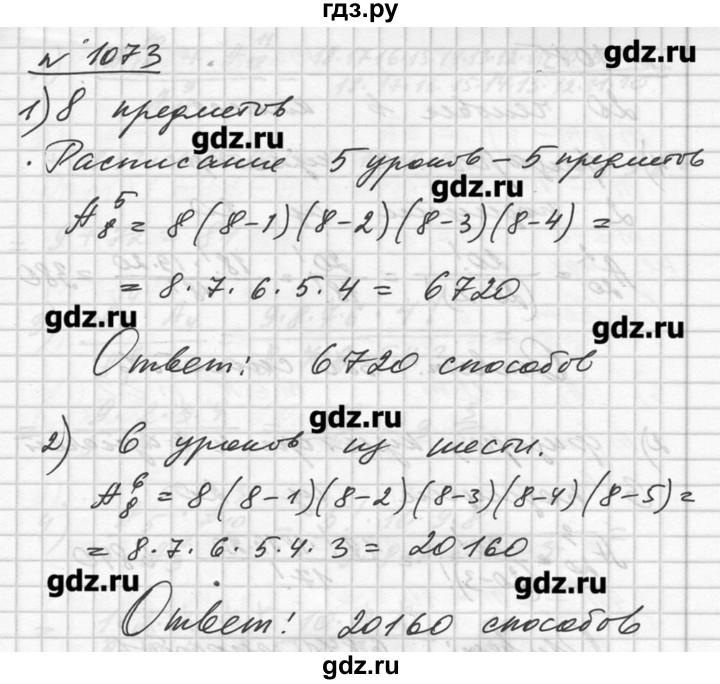 гдз.ру
gdz.ru
№ 1073
1) 8 предметов
gdz.ru
. Расписание 5 уроков – 5 предметов
gdz.ru
A₈⁵ = 8(8-1)(8-2)(8-3)(8-4) =
= 8·7·6·5·4 = 6720
gdz.ru
gdz.ru
Ответ: 6720 способов
gdz.ru
2) 6 уроков из шести.
A₈⁶ = 8(8-1)(8-2)(8-3)(8-4)(8-5) =
= 8·7·6·5·4·3 = 20160
gdz.ru
gdz.ru
Ответ: 20160 способов
gdz.ru